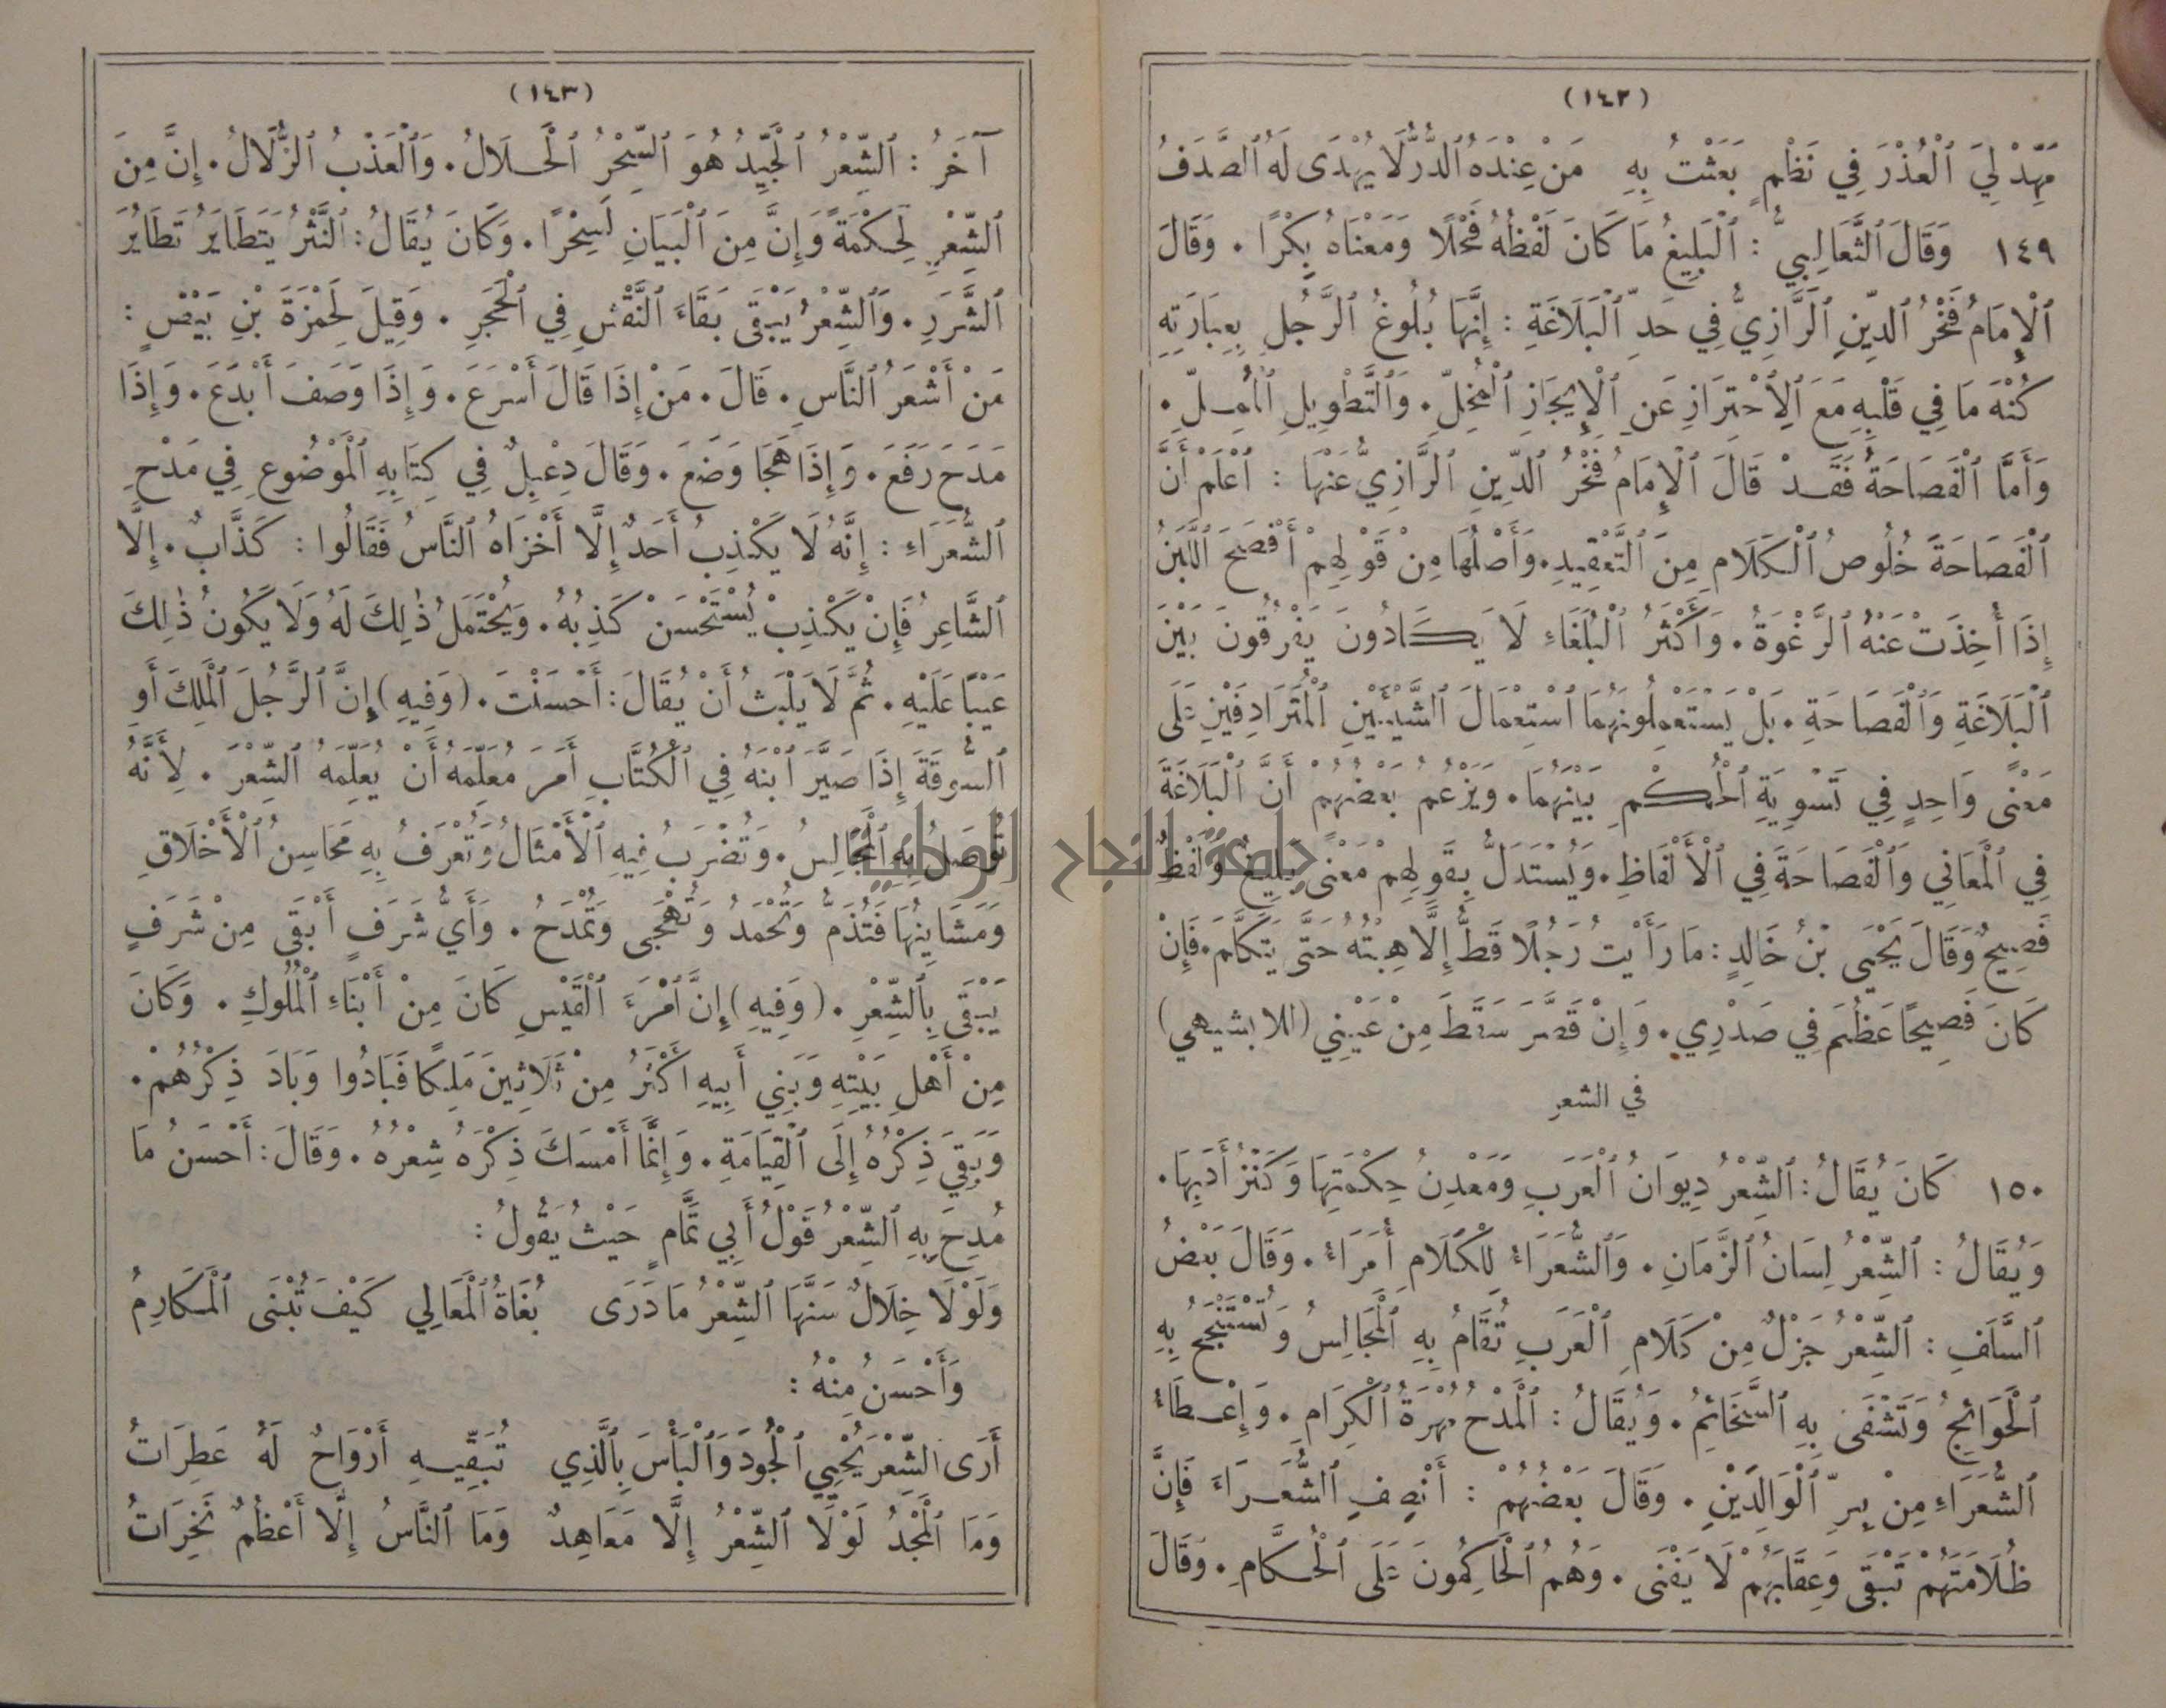 (١٤٢)
مَهِّدْ لِيَ ٱلْعُذْرَ فِي نَظْمٍ بَعَثْتُ بِهِ مَنْ عِنْدَهُ ٱلدُّرُّ لَا يُهْدَى لَهُ ٱلصَّدَفُ
١٤٩ وَقَالَ ٱلثَّعَالِبِيُّ : ٱلْبَلِيغُ مَا كَانَ لَفْظُهُ فَحْلًا وَمَعْنَاهُ بِكْرًا . وَقَالَ
ٱلْإِمَامُ فَخْرُ ٱلدِّينِ ٱلرَّازِيُّ فِي حَدِّ ٱلْبَلَاغَةِ : إِنَّهَا بُلُوغُ ٱلرَّجُلِ بِعِبَارَتِهِ
كُنْهَ مَا فِي قَلْبِهِ مَعَ ٱلِٱحْتِرَازِ عَنِ ٱلْإِيجَازِ ٱلْمُخِلِّ . وَٱلتَّطْوِيلِ ٱلْمُمِلِّ .
وَأَمَّا ٱلْفَصَاحَةُ فَقَدْ قَالَ ٱلْإِمَامُ فَخْرُ ٱلدِّينِ ٱلرَّازِيُّ عَنْهَا : ٱعْلَمْ أَنَّ
ٱلْفَصَاحَةَ خُلُوصُ ٱلْكَلَامِ مِنَ ٱلتَّعْقِيدِ . وَأَصْلُهَا مِنْ قَوْلِهِمْ أَفْصَحَ ٱللَّبَنُ
إِذَا أُخِذَتْ عَنْهُ ٱلرَّغْوَةُ . وَأَكْثَرُ ٱلْبُلَغَاءِ لَا يَكَادُونَ يَفْرُقُونَ بَيْنَ
ٱلْبَلَاغَةِ وَٱلْفَصَاحَةِ . بَلْ يَسْتَعْمِلُونَهُمَا ٱسْتِعْمَالَ ٱلشَّيْئَيْنِ ٱلْمُتَرَادِفَيْنِ عَلَى
مَعْنًى وَاحِدٍ فِي تَسْوِيَةِ ٱلْحُكْمِ بَيْنَهُمَا . وَيَزْعُمُ بَعْضُهُمْ أَنَّ ٱلْبَلَاغَةَ
فِي ٱلْمَعَانِي وَٱلْفَصَاحَةَ فِي ٱلْأَلْفَاظِ . وَيُسْتَدَلُّ بِقَوْلِهِمْ مَعْنًى بَلِيغٌ وَلَفْظٌ
فَصِيحٌ وَقَالَ يَحْيَى بْنُ خَالِدٍ : مَا رَأَيْتُ رَجُلًا قَطُّ إِلَّا هِبْتُهُ حَتَّى يَتَكَلَّمَ . فَإِنْ
كَانَ فَصِيحًا عَظُمَ فِي صَدْرِي . وَإِنْ قَصَّرَ سَقَطَ مِنْ عَيْنِي (للابشيهي)
في الشعر
١٥٠ كَانَ يُقَالُ : ٱلشِّعْرُ دِيوَانُ ٱلْعَرَبِ وَمَعْدِنُ حِكْمَتِهَا وَكَنْزُ أَدَبِهَا .
وَيُقَالُ : ٱلشِّعْرُ لِسَانُ ٱلزَّمَانِ . وَٱلشُّعَرَاءُ لِلْكَلَامِ أُمَرَاءُ . وَقَالَ بَعْضُ
ٱلسَّلَفِ : ٱلشِّعْرُ جَزْلٌ مِنْ كَلَامِ ٱلْعَرَبِ تُقَامُ بِهِ ٱلْمَجَالِسُ وَتُسْتَنْجَحُ بِهِ
ٱلْحَوَائِجُ وَتُشْفَى بِهِ ٱلسَّخَائِمُ . وَيُقَالُ : ٱلْمَدْحُ مُهْرَةُ ٱلْكِرَامِ . وَإِعْطَاءُ
ٱلشُّعَرَاءِ مِنْ بِرِّ ٱلْوَالِدَيْنِ . وَقَالَ بَعْضُهُمْ : أَنْصِفِ ٱلشُّعَرَاءَ فَإِنَّ
ظُلَامَتَهُمْ تَبْقَى وَعِقَابَهُمْ لَا يَفْنَى . وَهُمُ ٱلْحَاكِمُونَ عَلَى ٱلْحُكَّامِ . وَقَالَ
(١٤٣)
آخَرُ : ٱلشِّعْرُ ٱلْجَيِّدُ هُوَ ٱلسِّحْرُ ٱلْحَلَالُ . وَٱلْعَذْبُ ٱلزُّلَالُ . إِنَّ مِنَ
ٱلشِّعْرِ لَحِكْمَةً وَإِنَّ مِنَ ٱلْبَيَانِ لَسِحْرًا . وَكَانَ يُقَالُ : ٱلنَّثْرُ يَتَطَايَرُ تَطَايُرَ
ٱلشَّرَرِ . وَٱلشِّعْرُ يَبْقَى بَقَاءَ ٱلنَّقْشِ فِي ٱلْحَجَرِ . وَقِيلَ لِحَمْزَةَ بْنِ بَيْضٍ :
مَنْ أَشْعَرُ ٱلنَّاسِ . قَالَ . مَنْ إِذَا قَالَ أَسْرَعَ . وَإِذَا وَصَفَ أَبْدَعَ . وَإِذَا
مَدَحَ رَفَعَ . وَإِذَا هَجَا وَضَعَ . وَقَالَ دِعْبِلٌ فِي كِتَابِهِ ٱلْمَوْضُوعِ فِي مَدْحِ
ٱلشُّعَرَاءِ : إِنَّهُ لَا يَكْذِبُ أَحَدٌ إِلَّا أَخْزَاهُ ٱلنَّاسُ فَقَالُوا : كَذَّابٌ . إِلَّا
ٱلشَّاعِرُ فَإِنْ يَكْذِبْ يُسْتَحْسَنْ كَذِبُهُ . وَيُحْتَمَلُ ذٰلِكَ لَهُ وَلَا يَكُونُ ذٰلِكَ
عَيْبًا عَلَيْهِ . ثُمَّ لَا يَلْبَثُ أَنْ يُقَالَ : أَحْسَنْتَ . (وَفِيهِ) إِنَّ ٱلرَّجُلَ ٱلْمَلِكَ أَوِ
ٱلسُّوقَةَ إِذَا صَيَّرَ ٱبْنَهُ فِي ٱلْكُتَّابِ أَمَرَ مُعَلِّمَهُ أَنْ يُعَلِّمَهُ ٱلشِّعْرَ . لِأَنَّهُ
تُوصَلُ بِهِ ٱلْمَجَالِسُ . وَتُضْرَبُ فِيهِ ٱلْأَمْثَالُ وَتُعْرَفُ بِهِ مَحَاسِنُ ٱلْأَخْلَاقِ
وَمَشَايِنُهَا فَتُذَمُّ وَتُحْمَدُ وَتُهْجَى وَتُمْدَحُ . وَأَيُّ شَرَفٍ أَبْقَى مِنْ شَرَفٍ
يَبْقَى بِٱلشِّعْرِ . (وَفِيهِ) إِنَّ ٱمْرَءَ ٱلْقَيْسِ كَانَ مِنْ أَبْنَاءِ ٱلْمُلُوكِ . وَكَانَ
مِنْ أَهْلِ بَيْتِهِ وَبَنِي أَبِيهِ أَكْثَرُ مِنْ ثَلَاثِينَ مَلِكًا فَبَادُوا وَبَادَ ذِكْرُهُمْ .
وَبَقِيَ ذِكْرُهُ إِلَى ٱلْقِيَامَةِ . وَإِنَّمَا أَمْسَكَ ذِكْرَهُ شِعْرُهُ . وَقَالَ : أَحْسَنُ مَا
مُدِحَ بِهِ ٱلشِّعْرُ قَوْلُ أَبِي تَمَّامٍ حَيْثُ يَقُولُ :
وَلَوْلَا خِلَالٌ سَنَّهَا ٱلشِّعْرُ مَا دَرَى بُغَاةُ ٱلْمَعَالِي كَيْفَ تُبْنَى ٱلْمَكَارِمُ
وَأَحْسَنُ مِنْهُ :
أَرَى ٱلشِّعْرَ يُحْيِي ٱلْجُودَ وَٱلْبَأْسَ بِٱلَّذِي تُبَقِّيهِ أَرْوَاحٌ لَهُ عَطِرَاتُ
وَمَا ٱلْمَجْدُ لَوْلَا ٱلشِّعْرُ إِلَّا مَعَاهِدٌ وَمَا ٱلنَّاسُ إِلَّا أَعْظُمٌ نَخِرَاتُ
جامعة النجاح الوطنية